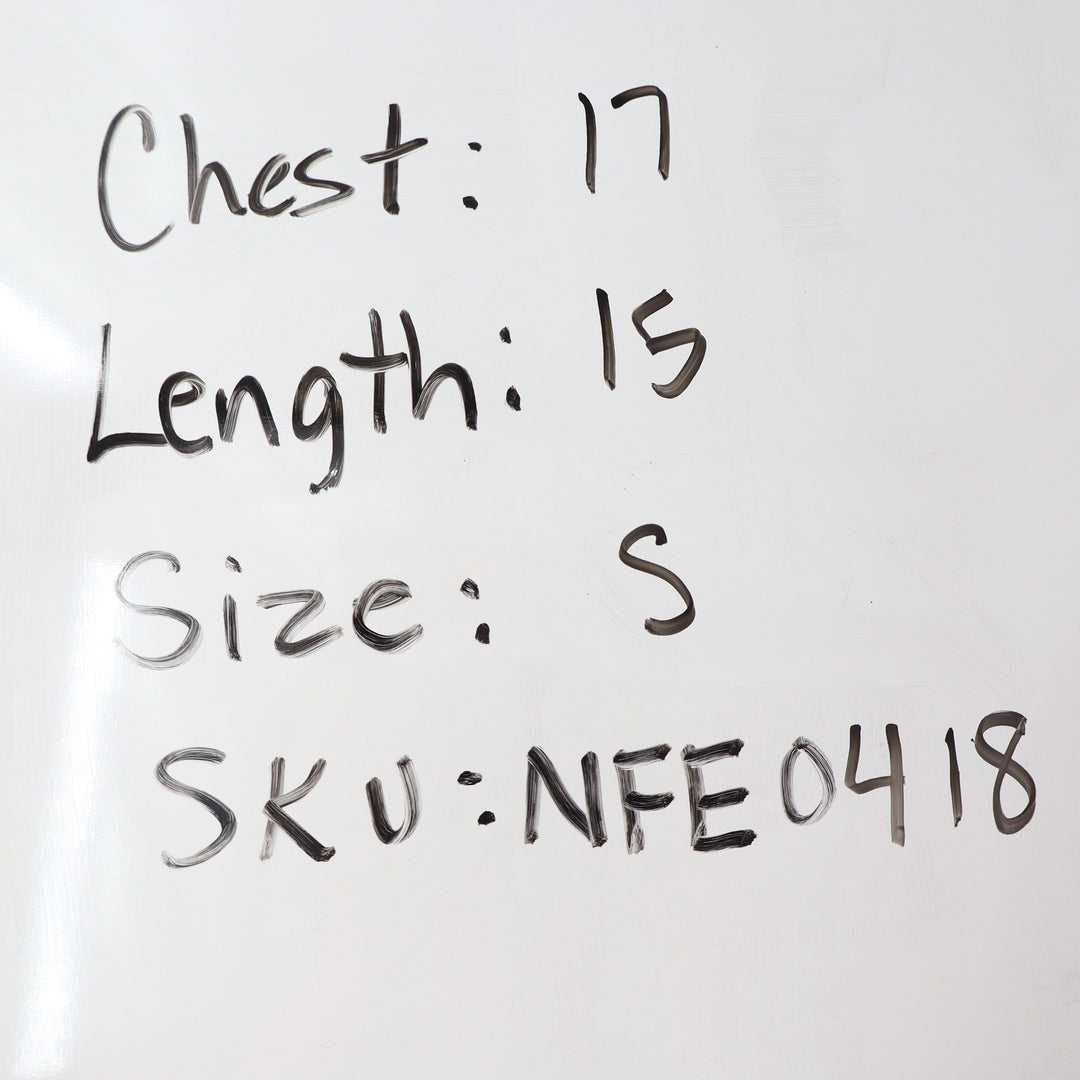 Chest: 17
Length: 15
Size: S
SKU:NFE0418